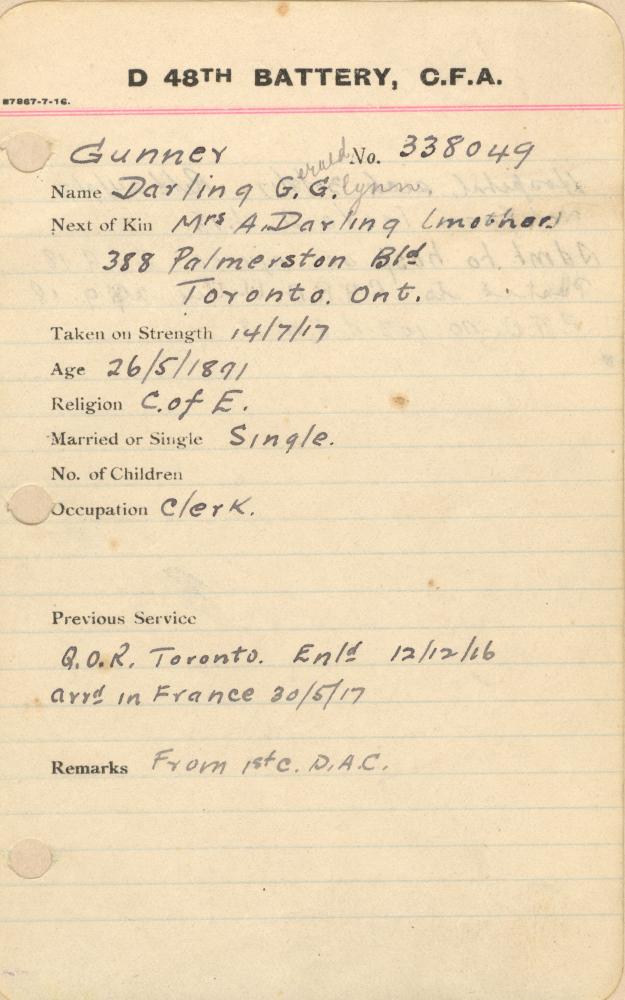 D 48TH BATTERY, C.F.A.
87867-7-16.
Gunner No. 338049
Name Darling G.G.
Next of Kin Mrs A. Darling (mother)
388 Palmerston Bld
Toronto. Ont.
Taken on Strength 14/7/17
Age 26/5/1891
Religion C. of E.
Married or Single Single.
No. of Children
Occupation Clerk.
Previous Service
Q.O.R. Toronto. Enld 12/12/16
arrd in France 30/5/17
Remarks From 1st C. D.A.C.